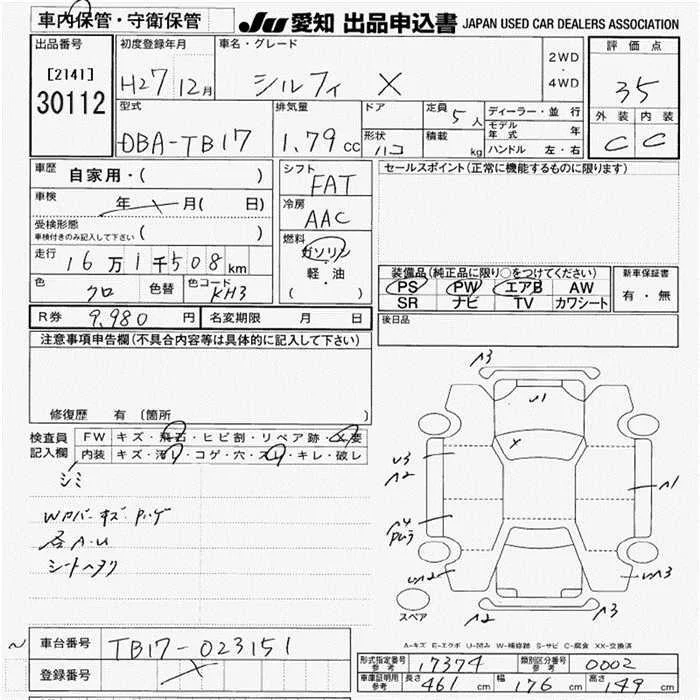 車内保管・守衛保管
JU 愛知 出品申込書 JAPAN USED CAR DEALERS ASSOCIATION
出品番号
[2141]
30112
初度登録年月
H27 12月
車名・グレード
シルフィ X
2WD
・
4WD
評価点
35
外装 内装
C C
型式
DBA-TB17
排気量
1.79 cc
ドア
形状
ハコ
定員 5 人
積載 kg
ディーラー・並行
モデル年式 年
ハンドル 左・右
車歴 自家用・( )
車検 年 月( 日)
受検形態
車検付きのみ記入して下さい ( )
走行 16万1千508km
色 クロ 色替 色コード KH3
シフト
FAT
冷房
AAC
燃料
ガソリン
・
軽・油
( )
セールスポイント(正常に機能するものに限ります)
装備品(純正品に限り○をつけてください)
PS PW エアB AW
SR ナビ TV カワシート
新車保証書
有・無
R券 9,980 円 名変期限 月 日
後日品
注意事項申告欄(不具合内容等は具体的に記入して下さい)
修復歴 有 〔箇所 〕
検査員
記入欄
FW キズ・飛石・ヒビ割・リペア跡・×要
内装 キズ・汚レ・コゲ・穴・スレ・キレ・破レ
シミ
Wカバー キズ・ハゲ
各A・U
シートヘタリ
A3
U1
X
U3
A2
A1
A4
A3
A2
スペア
A-キズ E-エクボ U-凹み W-補修跡 S-サビ C-腐食 XX-交換済
車台番号 TB17-023151
登録番号
形式指定番号 参考 17374 類別区分番号 参考 0002
車庫証明用 参考 長さ 461 cm 幅 176 cm 高さ 149 cm